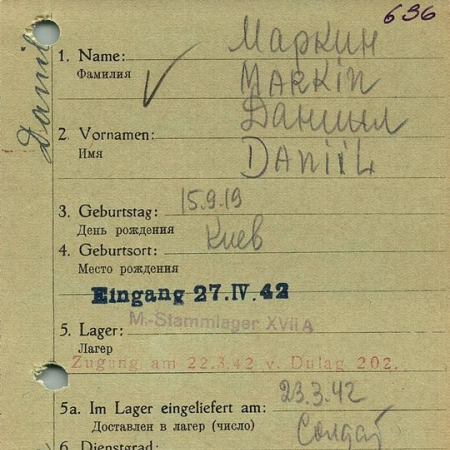 636
Маркин
1. Name: MARKIN
Фамилия
Даниил
Danil
2. Vornamen: DANIIL
Имя
3. Geburtstag: 15.9.19
День рождения
4. Geburtsort: Киев
Место рождения
Eingang 27.IV.42
M.-Stammlager XVII A
5. Lager:
Лагерь
Zugang am 22.3.42 v. Dulag 202.
5a. Im Lager eingeliefert am: 23.3.42
Доставлен в лагерь (число)
Солдат
6. Dienstgrad: